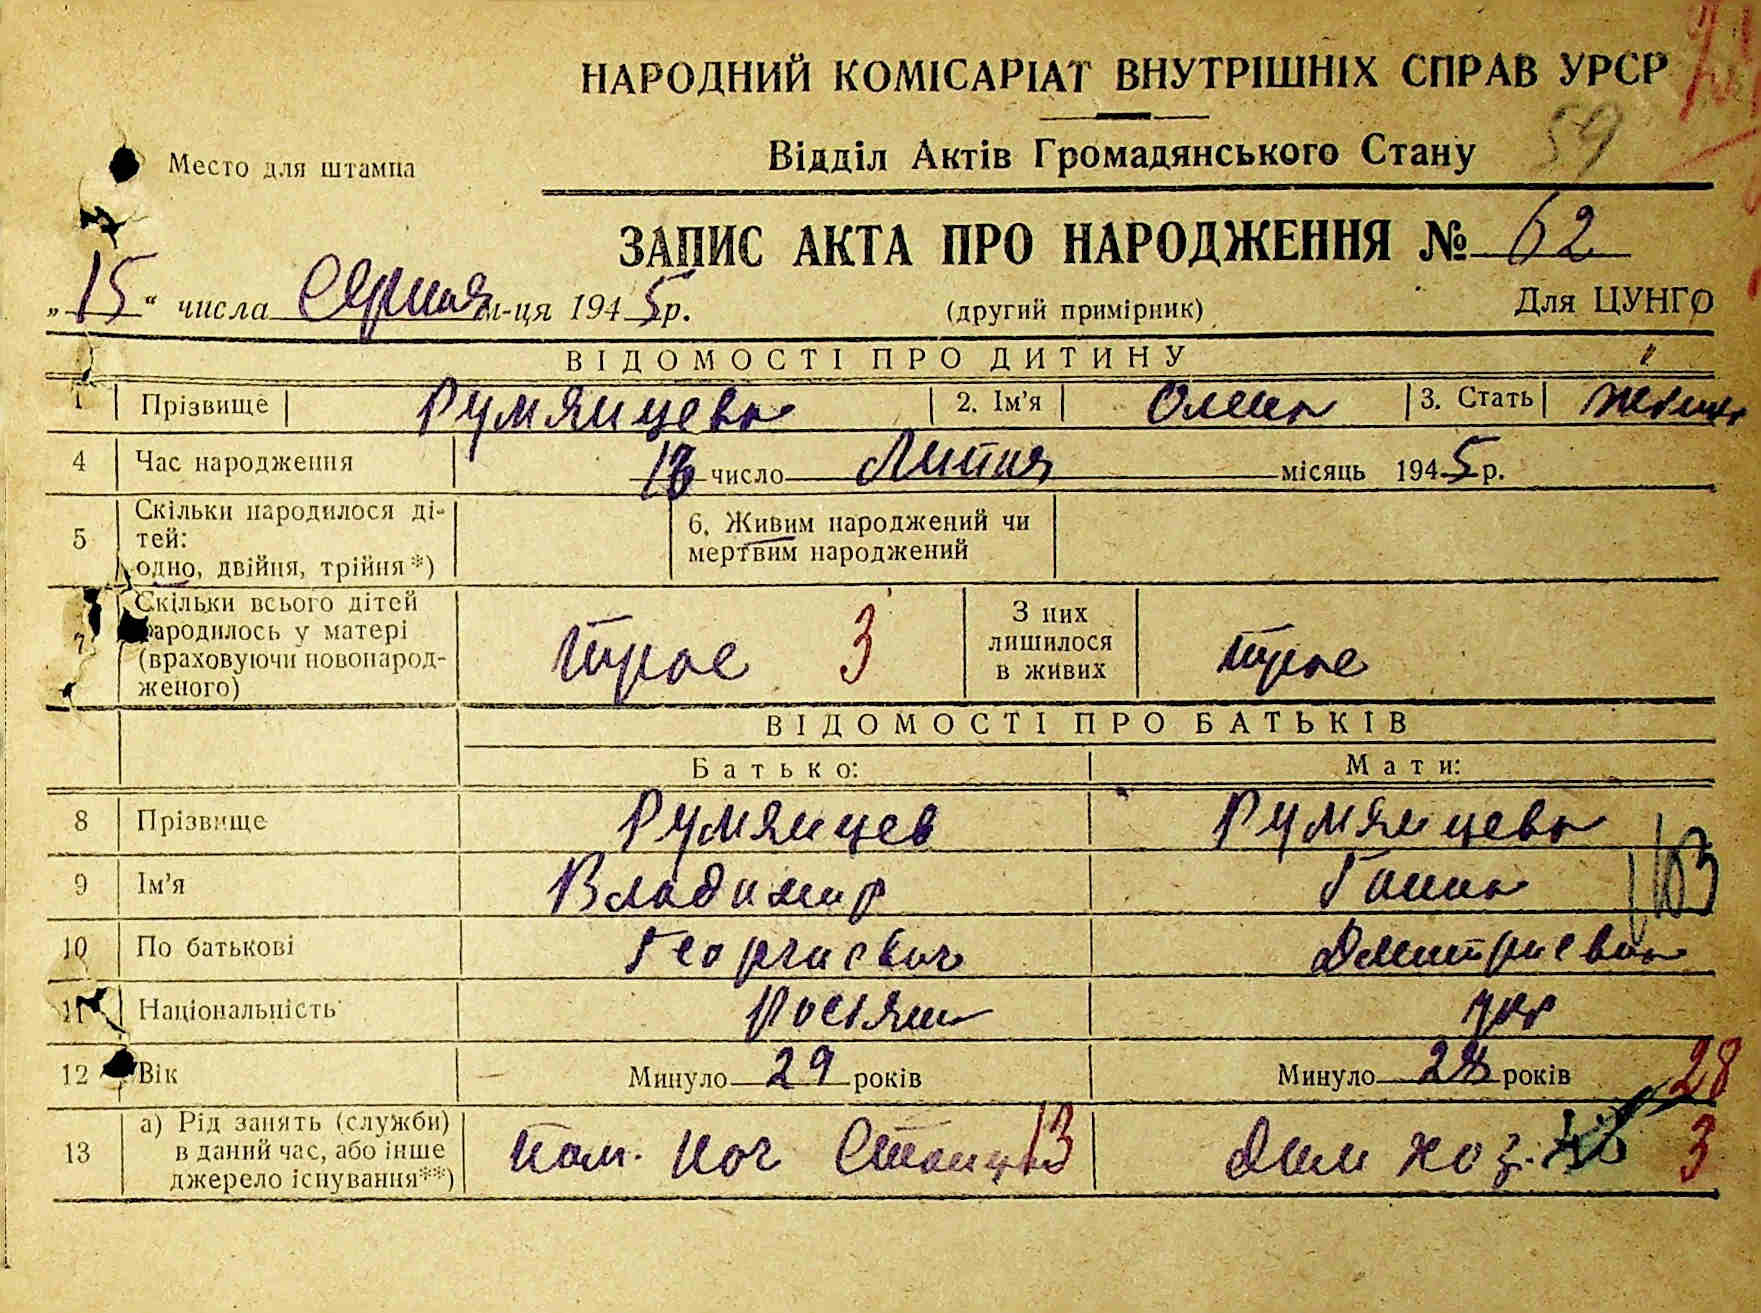 НАРОДНИЙ КОМІСАРІАТ ВНУТРІШНІХ СПРАВ УРСР
59
Відділ Актів Громадянського Стану
Место для штампа
ЗАПИС АКТА ПРО НАРОДЖЕННЯ № 62
„15“ числа Серпня м-ця 1945р.
(другий примірник)
Для ЦУНГО
ВІДОМОСТІ ПРО ДИТИНУ
1 Прізвище Румянцева 2. Ім'я Олена 3. Стать
4 Час народження число Липня місяць 1945р.
5 Скільки народилося ді-
тей:
одно, двійня, трійня*)
6. Живим народжений чи
мертвим народжений
7 Скільки всього дітей
народилось у матері
(враховуючи новонарод-
женого)
трое 3
З них
лишилося
в живих
трое
ВІДОМОСТІ ПРО БАТЬКІВ
Батько: Мати:
8 Прізвище Румянцев Румянцева
9 Ім'я Владимир Ганна
10 По батькові Георгиевич Дмитриевна
11 Національність Росіян укр
12 Вік Минуло 29 років Минуло 28 років 28
13 а) Рід занять (служби)
в даний час, або інше
джерело існування**)
Пом. Нач Станции 13 Дом хоз. 3